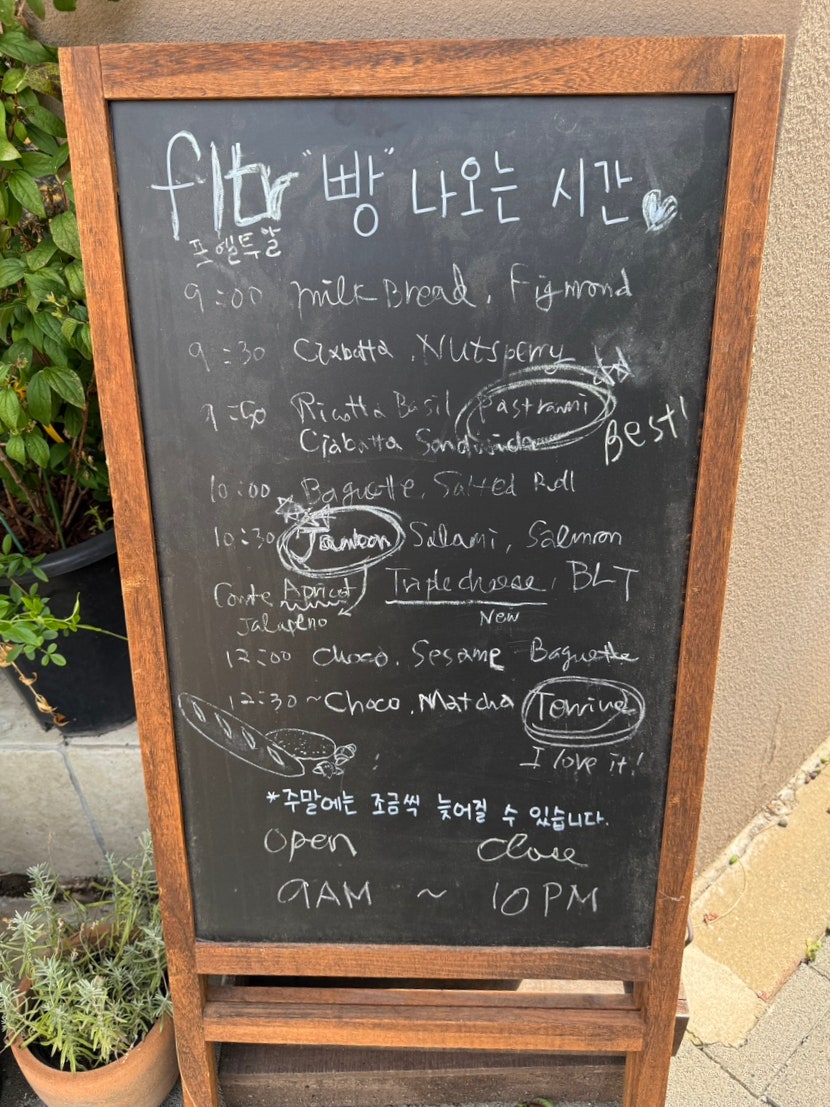 fltr "빵" 나오는 시간
포엘투알
9:00 milk Bread, Figmond
9:30 Ciabatta, Nutsperry
9:50 Ricotta Basil Pastrami
Best!
Ciabatta Sandwich
10:00 Baguette, Salted Roll
10:30 Jambon Salami, Salmon
Comte Apricot Triple cheese, BLT
Jalapeno New
12:00 choco, Sesame Baguette
12:30 ~ Choco, Matcha
I love it!
*주말에는 조금씩 늦어질 수 있습니다.
open close
9AM ~ 10PM